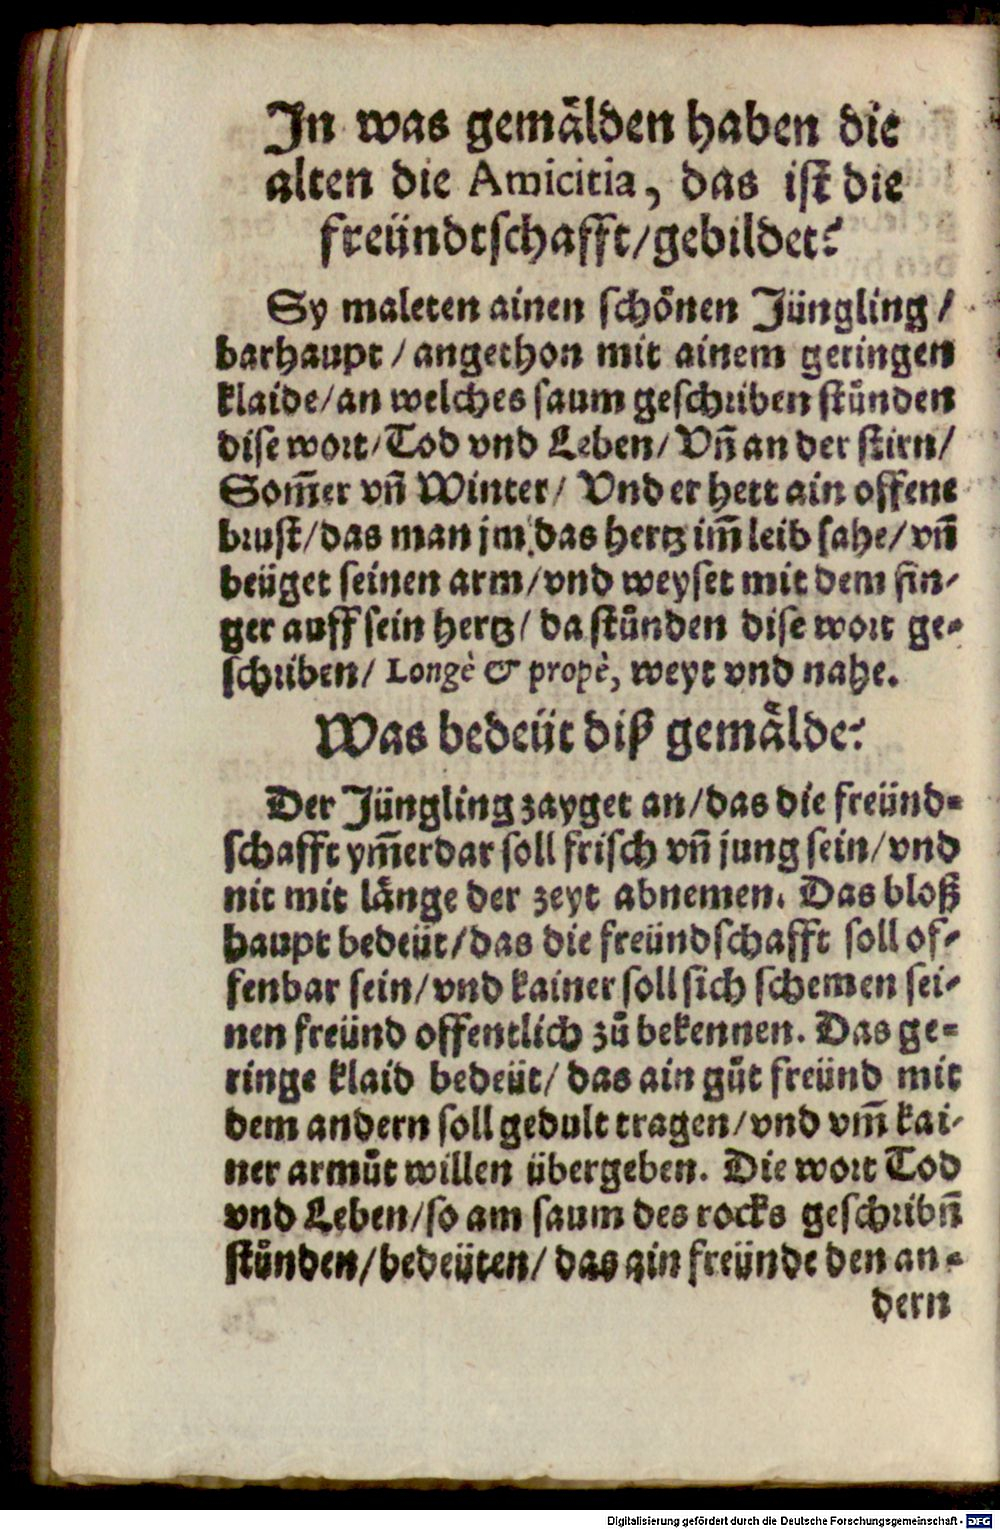 In was gemaͤlden haben die
alten die Amicitia, das iſt die
freündtſchafft/gebildet?
Sy maleten ainen ſchoͤnen Jüngling/
barhaupt/angethon mit ainem geringen
klaide/an welches ſaum geſchriben ſtuͤnden
diſe wort/Tod vnd Leben/Vñ an der ſtirn/
Som̃er vñ Winter/ Vnd er hett ain offene
bruſt/das man jm das hertz im̃ leib ſahe/vñ
beüget ſeinen arm/vnd weyſet mit dem fin-
ger auff ſein hertz/da ſtuͤnden diſe wort ge-
ſchriben/ Longè & propè, weyt vnd nahe.
Was bedeüt diß gemaͤlde?
Der Jüngling zayget an/das die freünd-
ſchafft ym̃erdar ſoll friſch vñ jung ſein/vnd
nit mit laͤnge der zeyt abnemen. Das bloß
haupt bedeüt/das die freündſchafft ſoll of-
fenbar ſein/vnd kainer ſoll ſich ſchemen ſei-
nen freünd offentlich zuͦ bekennen. Das ge-
ringe klaid bedeüt/das ain guͦt freünd mit
dem andern ſoll gedult tragen/vnd vm̃ kai-
ner armuͦt willen übergeben. Die wort Tod
vnd Leben/ſo am ſaum des rocks geſchribñ
ſtuͤnden/bedeüten/das ain freünde den an-
dern
Digitalisierung gefördert durch die Deutsche Forschungsgemeinschaft - DFG